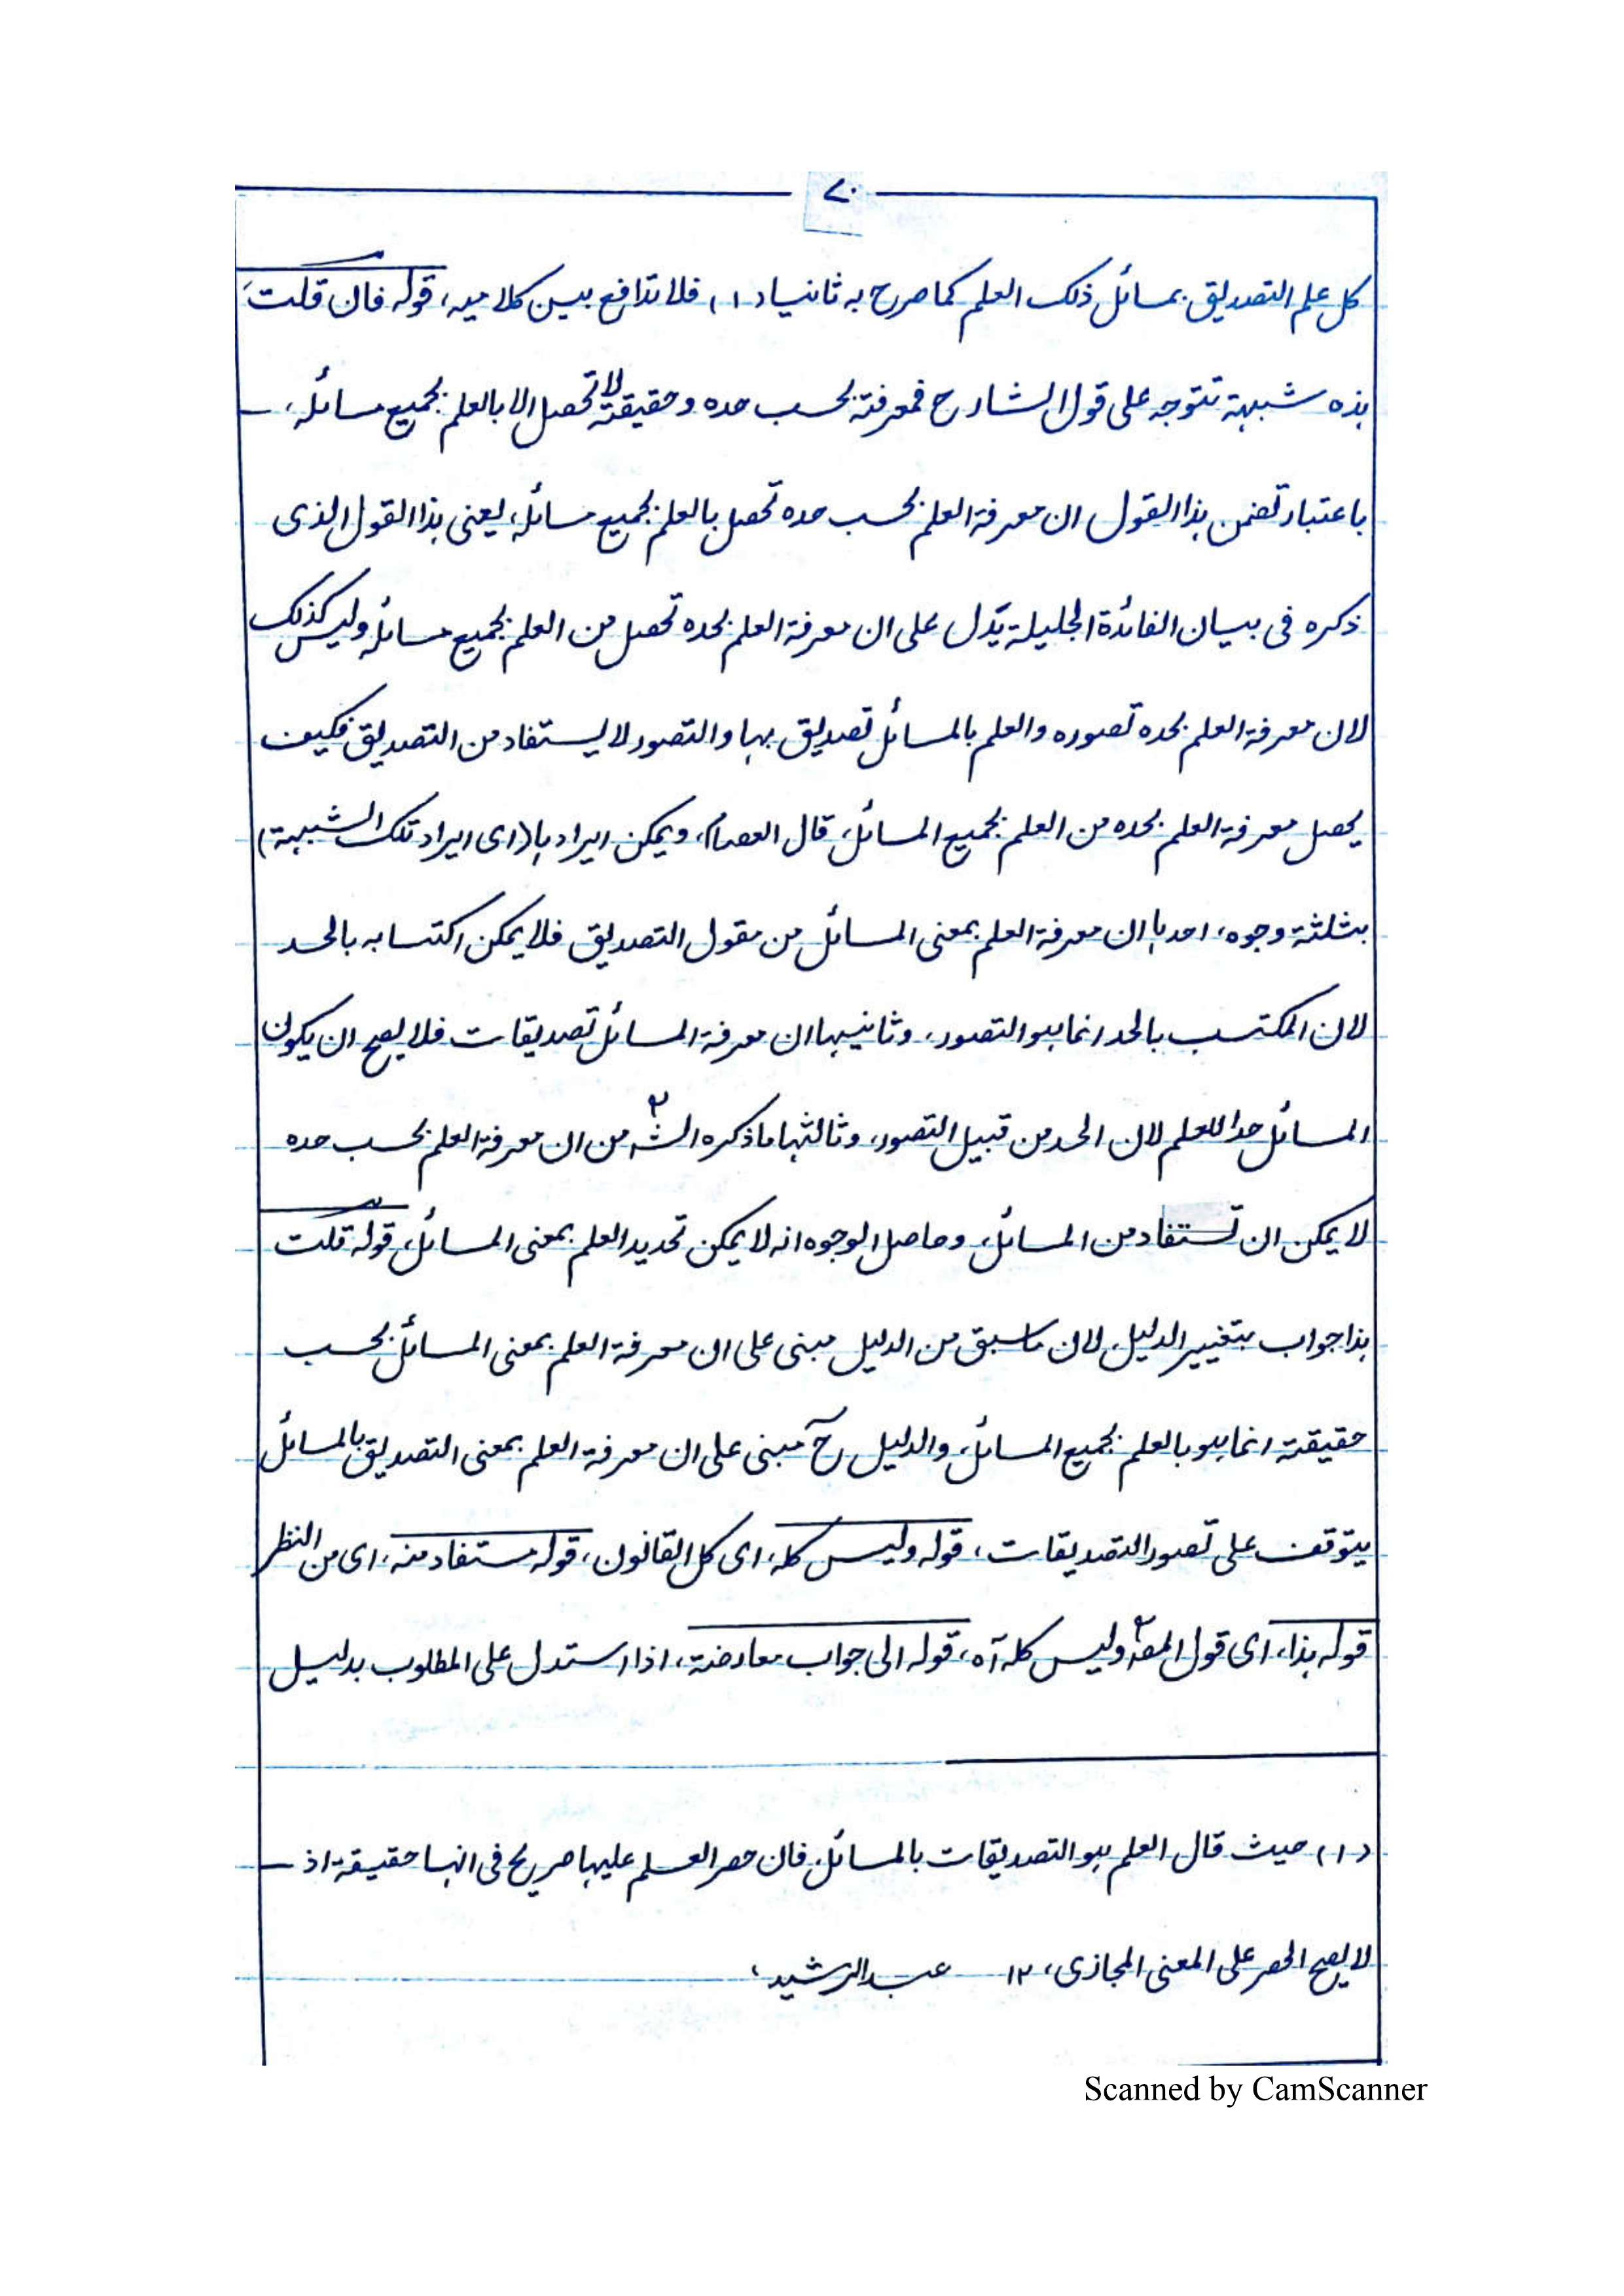 ٧٠
كل علم التصديق بمسائل ذلك العلم كما صرح به ثانيا (١) فلا تدافع بين كلاميه، قوله فان قلت،
هذه شبهة تتوجه على قول الشارح فمعرفته بحسب حده وحقيقته لا تحصل الا بالعلم بجميع مسائله، ـ
باعتبار تضمن هذا القول ان معرفة العلم بحسب حده تحصل بالعلم بجميع مسائله، يعنى هذا القول الذى
ذكره فى بيان الفائدة الجليلة يدل على ان معرفة العلم بحده تحصل من العلم بجميع مسائله وليس كذلك
لان معرفة العلم بحده تصوره والعلم بالمسائل تصديق بها والتصور لا يستفاد من التصديق فكيف
يحصل معرفة العلم بحده من العلم بجميع المسائل، قال العصام، ويمكن ايرادها (اى ايراد تلك الشبهة)
بثلثة وجوه، احدها ان معرفة العلم بمعنى المسائل من مقول التصديق فلا يمكن اكتسابه بالحد
لان المكتسب بالحد انما هو التصور، وثانيها ان معرفة المسائل تصديقات فلا يصح ان يكون
المسائل حدا للعلم لان الحد من قبيل التصور، وثالثها ما ذكره الشؒ من ان معرفة العلم بحسب حده
لا يمكن ان تستفاد من المسائل، وحاصل الوجوه انه لا يمكن تحديد العلم بمعنى المسائل، قوله قلت
هذا جواب بتغيير الدليل، لان ما سبق من الدليل مبنى على ان معرفة العلم بمعنى المسائل بحسب
حقيقته انما هو بالعلم بجميع المسائل، والدليل حٓ مبنى على ان معرفة العلم بمعنى التصديق بالمسائل
يتوقف على تصور التصديقات، قوله وليس كله، اى كل القانون، قوله مستفاد منه، اى من النظر
قوله هذا، اى قول المصؒ وليس كله آه، قوله الى جواب معارضة، اذا استدل على المطلوب بدليل
(١) حيث قال العلم هو التصديقات بالمسائل، فان حصر العلم عليها صريح فى انها حقيقة اذ ـ
لا يصح الحصر على المعنى المجازى، ١٢ عبد الرشيد،
Scanned by CamScanner